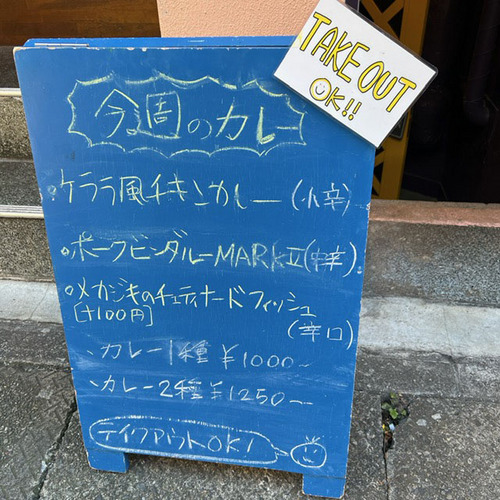 TAKE OUT
OK!!
今週のカレー
・ケララ風チキンカレー(小辛)
・ポークビンダルーMARKⅡ(中辛)
・メカジキのチェティナードフィッシュ
[+100円]
(辛口)
・カレー1種 ¥1000~
・カレー2種 ¥1250~
テイクアウトOK!